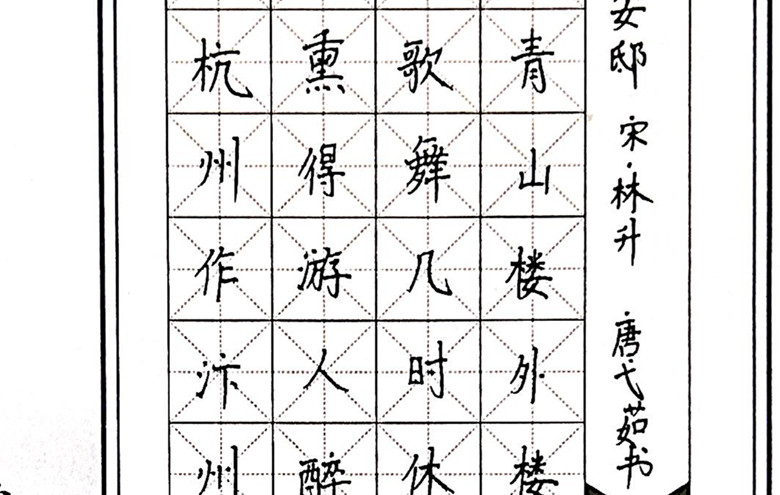 安邸 宋·林升 唐弋茹书
青山楼外楼
歌舞几时休
熏得游人醉
杭州作汴州